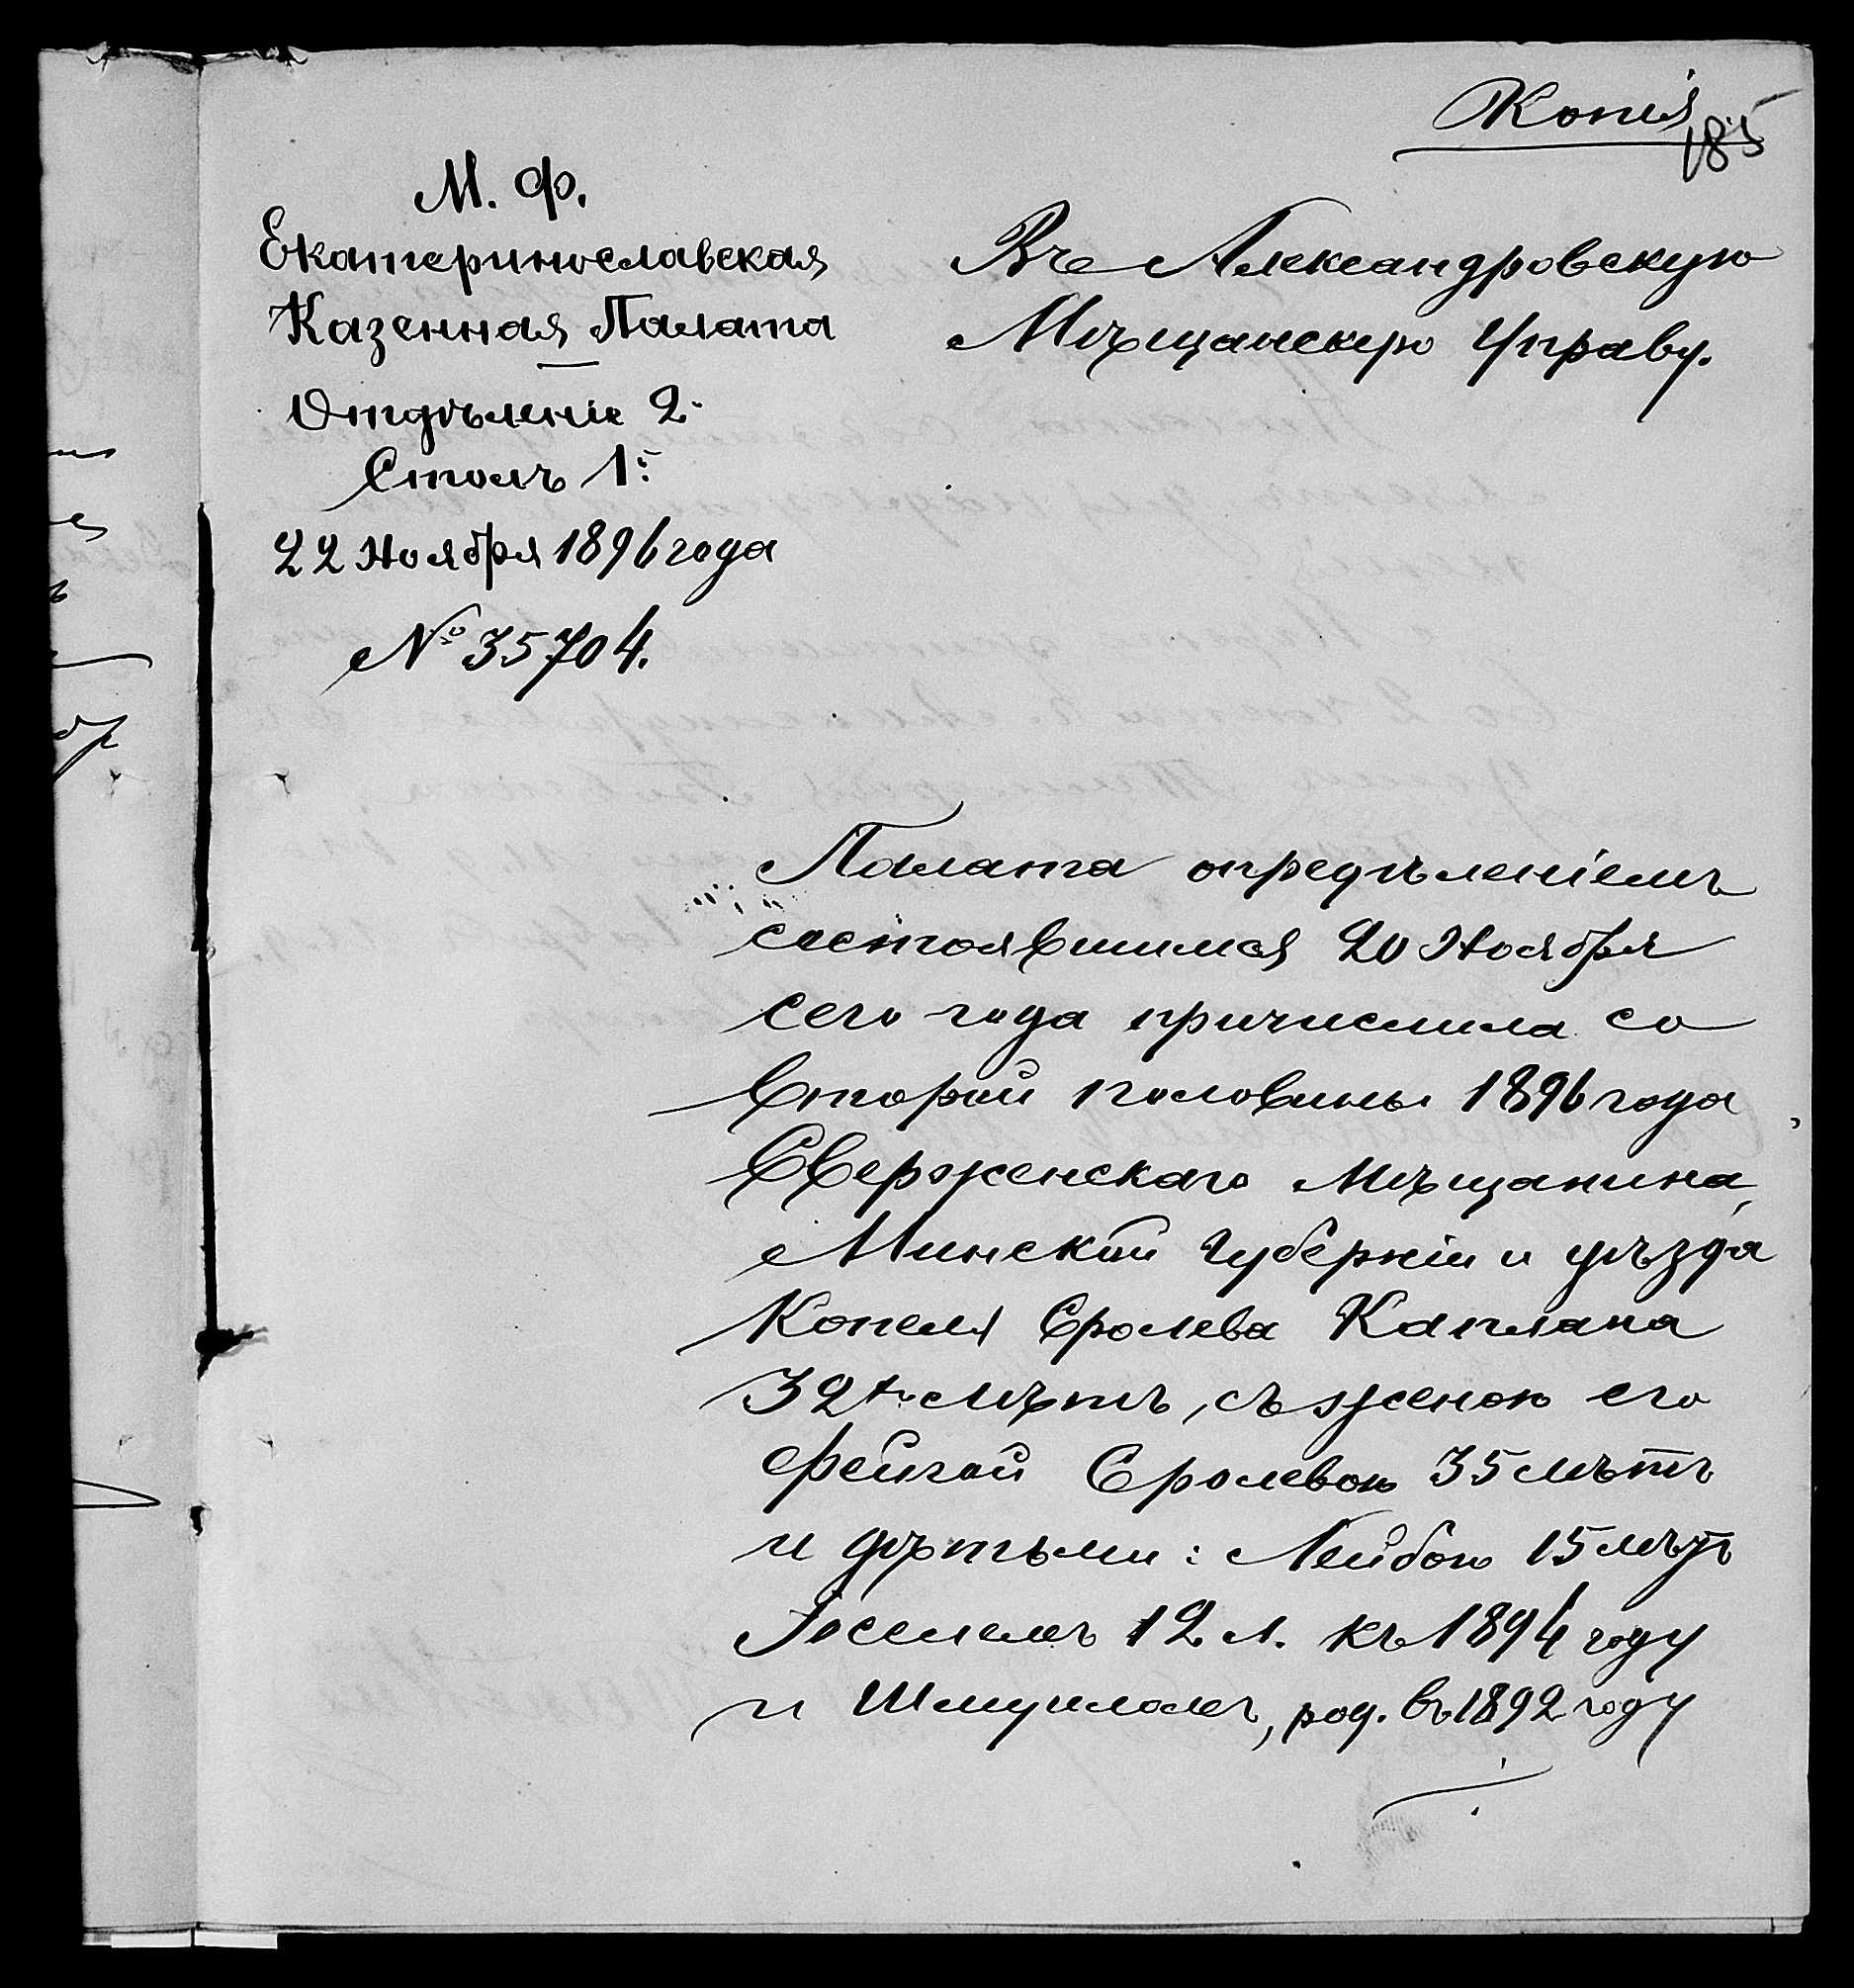 Копія
185
М. Ф.
Екатеринославская
Казенная Палата
Отдѣленіе 2.
Столъ 1й.
22 Ноября 1896 года
№ 35704.
Въ Александровскую
Мѣщанскую Управу.
Палата опредѣленіемъ
состоявшимся 20 Ноября
сего года причислила со
второй половины 1896 года
Сверженскаго мѣщанина,
Минской Губерніи и уѣзда
Копеля Сролева Каплана
32х лѣтъ, съ женою его
Фейгой Сролевою 35 лѣтъ
и дѣтьми: Лейбою 15 лѣтъ
Іоселемъ 12 л. къ 1894 году
и Шмуиломъ, род. въ 1892 году